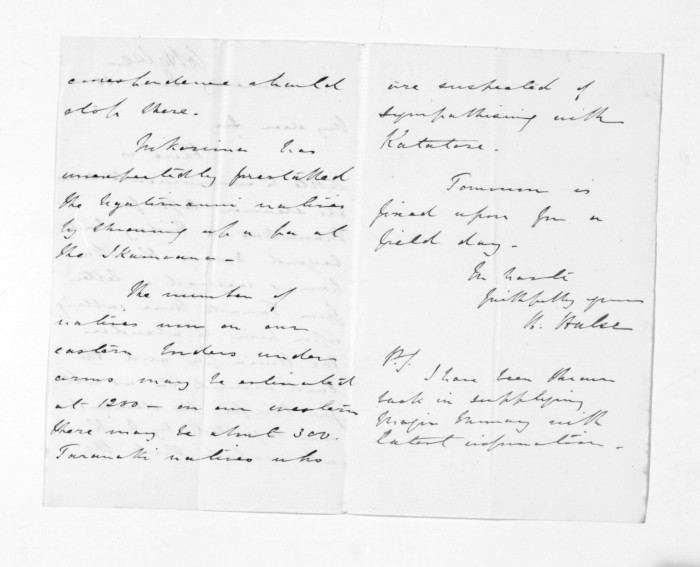 correspondence should
stop there.
Nikorima has
unexpectedly forestalled
the Ngatimaniu natives
by throwing up a pa at
the Ikamoana -
The number of
natives now on our
eastern borders under
arms may be estimated
at 1200 - on our western
there may be about 300.
Taranaki natives who
are suspected of
sympathising with
Katatore.
Tomorrow is
fixed upon for a
field day -
In haste
faithfully yours
H. Halse
P.S.
I have been thrown
back in supplying
Major Murray with
latest information -